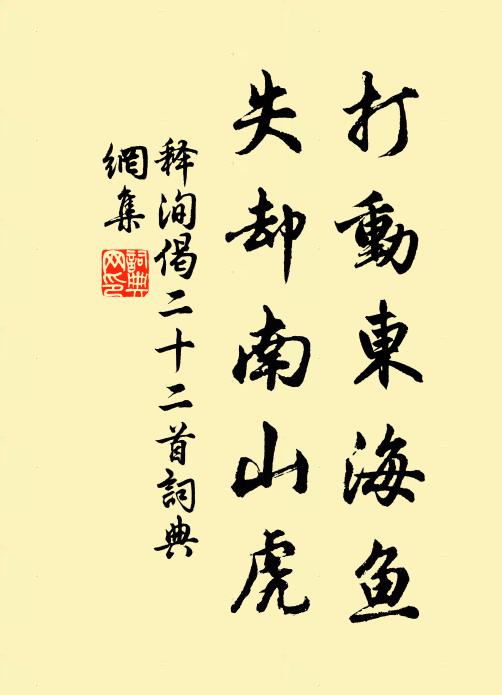 打動東海鱼
失却南山虎
释洵偈二十二首詞典
網集
詞典
网印